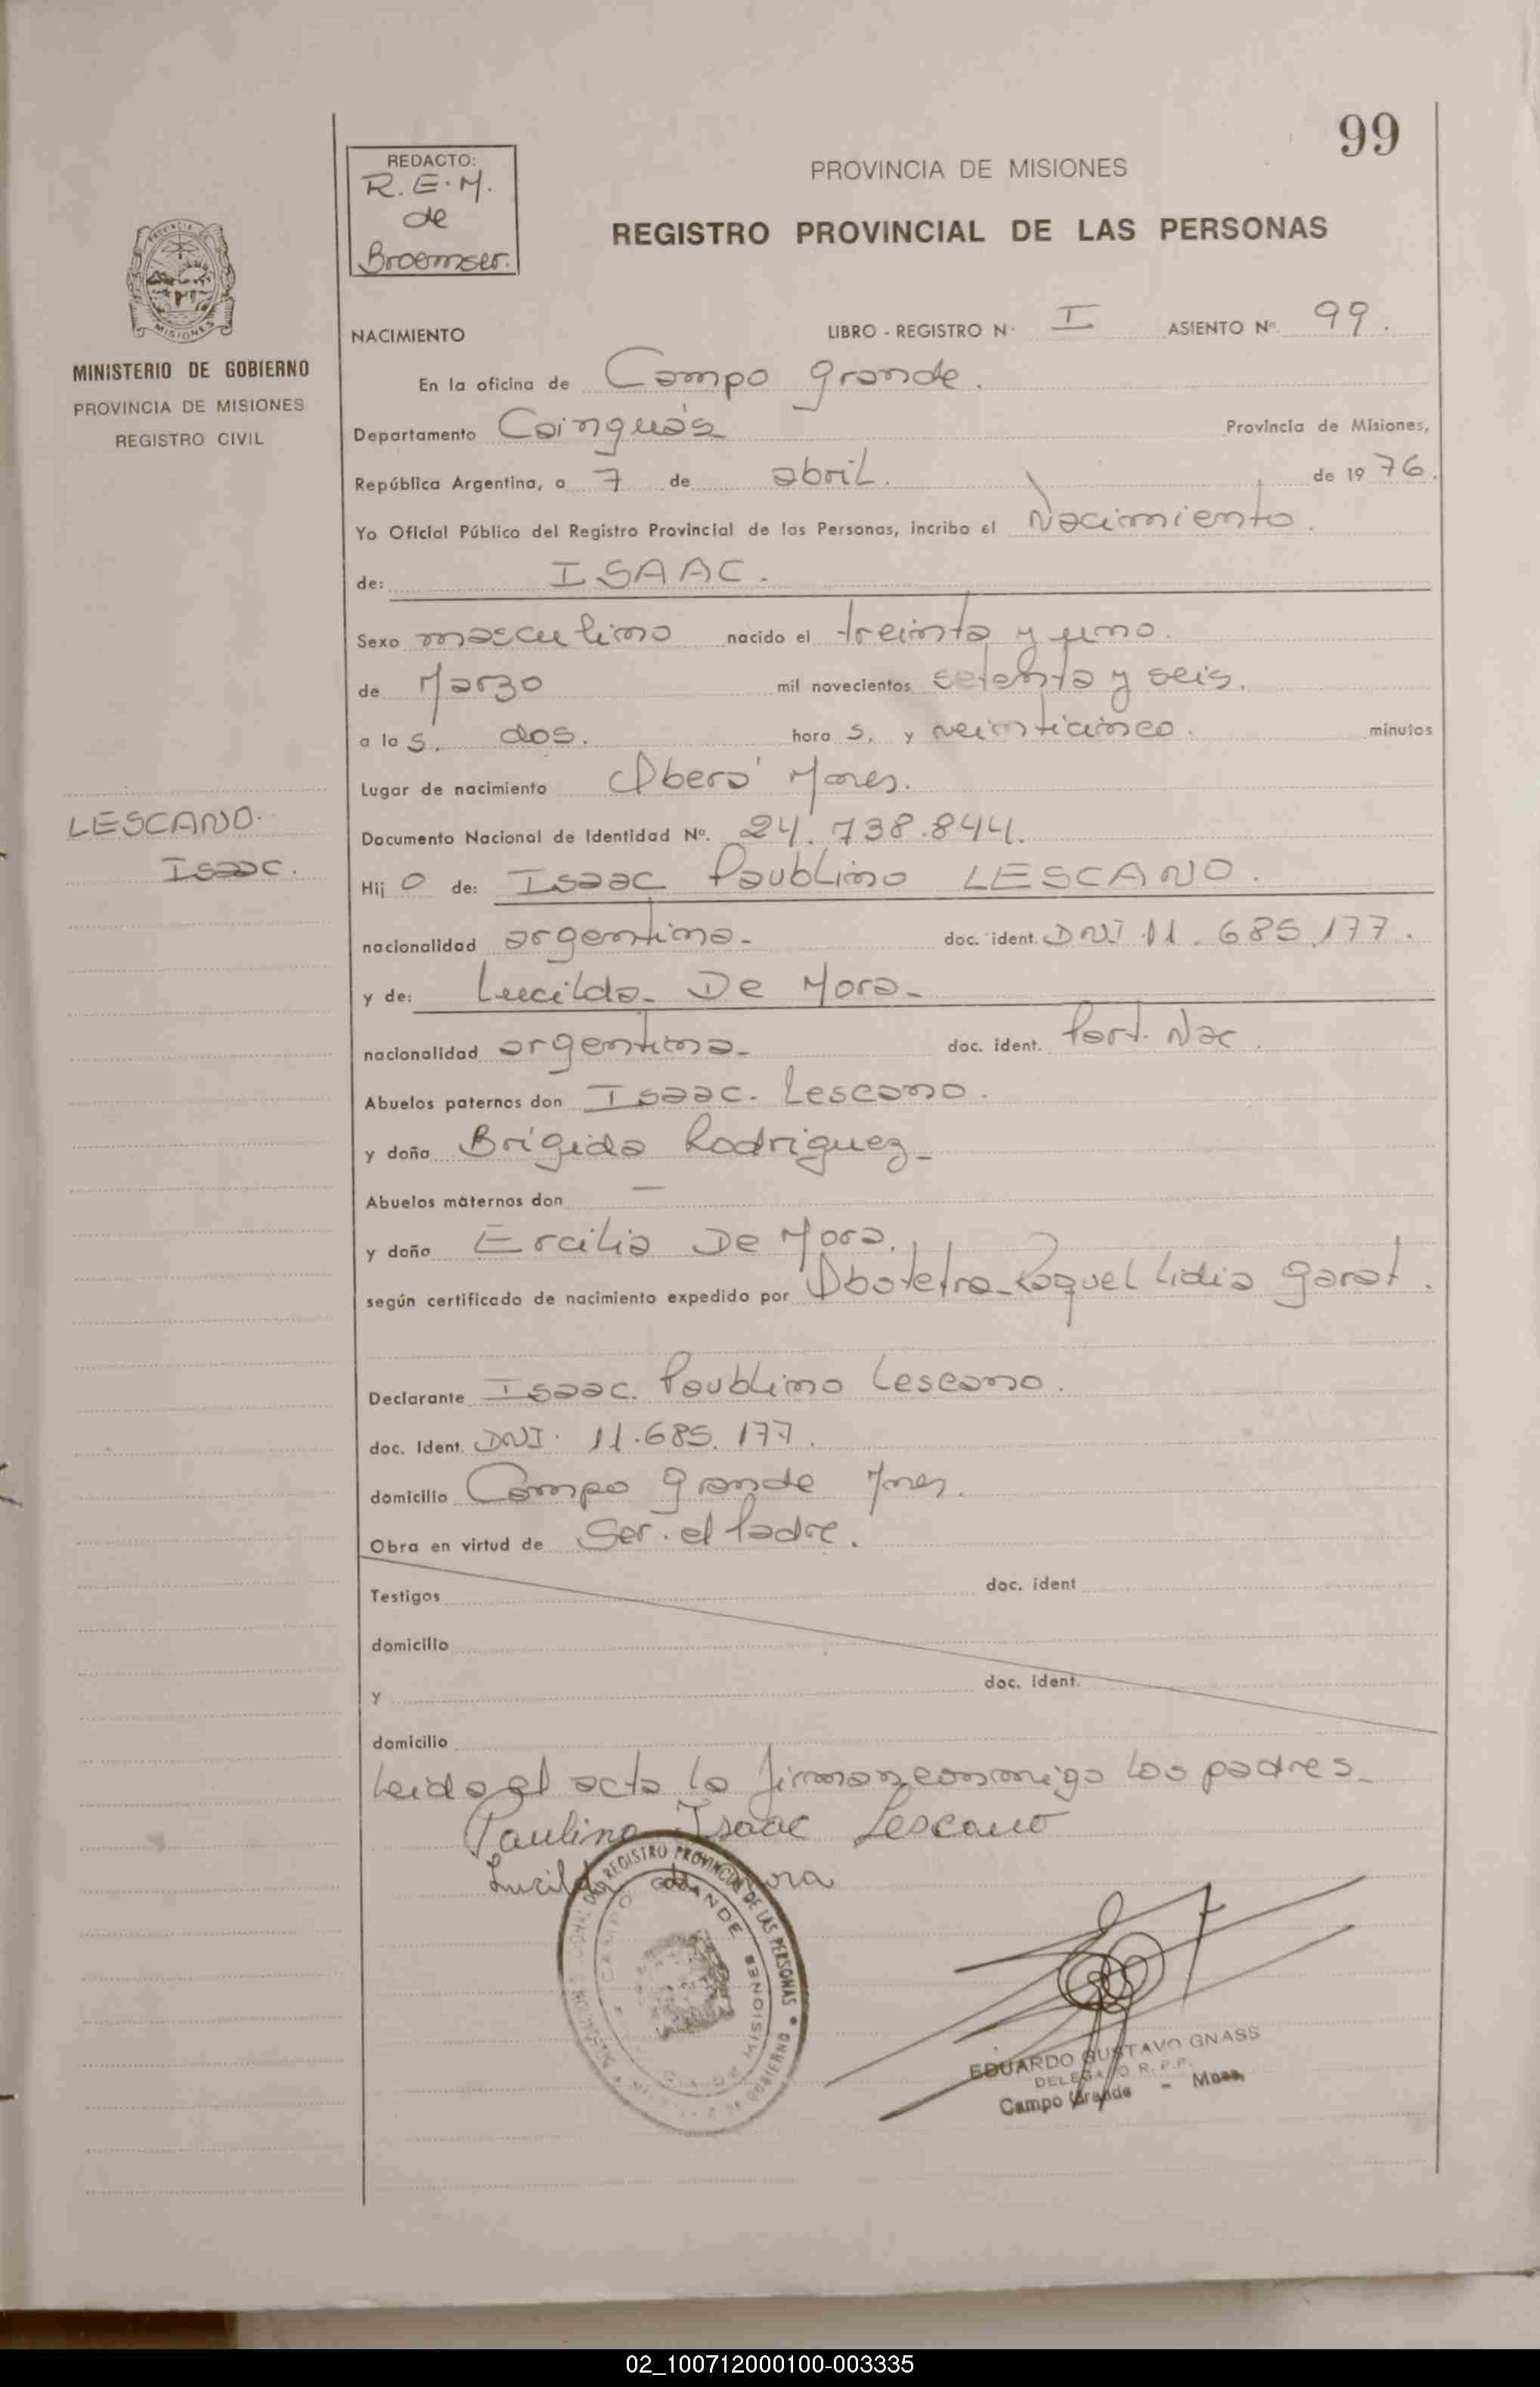 99
REDACTO:
R. E. M.
de
Broemser.
PROVINCIA DE MISIONES
REGISTRO PROVINCIAL DE LAS PERSONAS
MISIONES
MINISTERIO DE GOBIERNO
PROVINCIA DE MISIONES
REGISTRO CIVIL
NACIMIENTO LIBRO - REGISTRO N· I ASIENTO Nº 99.
En la oficina de Campo grande.
Departamento Cainguás Provincia de Misiones,
República Argentina, a 7 de abril. de 1976.
Yo Oficial Público del Registro Provincial de las Personas, incribo el Nacimiento.
de: ISAAC.
Sexo masculino nacido el treinta y uno.
de Marzo mil novecientos setenta y seis.
a las, dos. horas, y veinticinco. minutos
Lugar de nacimiento Oberá Mones.
Documento Nacional de Identidad Nº. 24.738.844.
LESCANO.
Isaac.
Hijo de: Isaac Paublino LESCANO.
nacionalidad argentina- doc. ident. DNI 11.685.177.
y de: Lucilda- De Mora-
nacionalidad argentina- doc. ident. Part. Nac.
Abuelos paternos don Isaac. Lescano.
y doña Brígida Rodriguez-
Abuelos maternos don —
y doña Ercilia De Mora.
según certificado de nacimiento expedido por Obstetra-Raquel Lidia Garat.
Declarante Isaac. Paublino Lescano.
doc. Ident. DNI· 11.685.177.
domicilio Campo grande Mnes.
Obra en virtud de Ser. el Padre.
Testigos doc. ident
domicilio
y doc. ident.
domicilio
Leida el acta la firman conmigo los padres-
Paulino Isaac Lescano
REGISTRO PROVINCIAL DE LAS PERSONAS
CAMPO GRANDE MISIONES
EDUARDO GUSTAVO GNASS
DELEGADO R. P. P.
Campo Grande - Mnes,
02_100712000100-003335